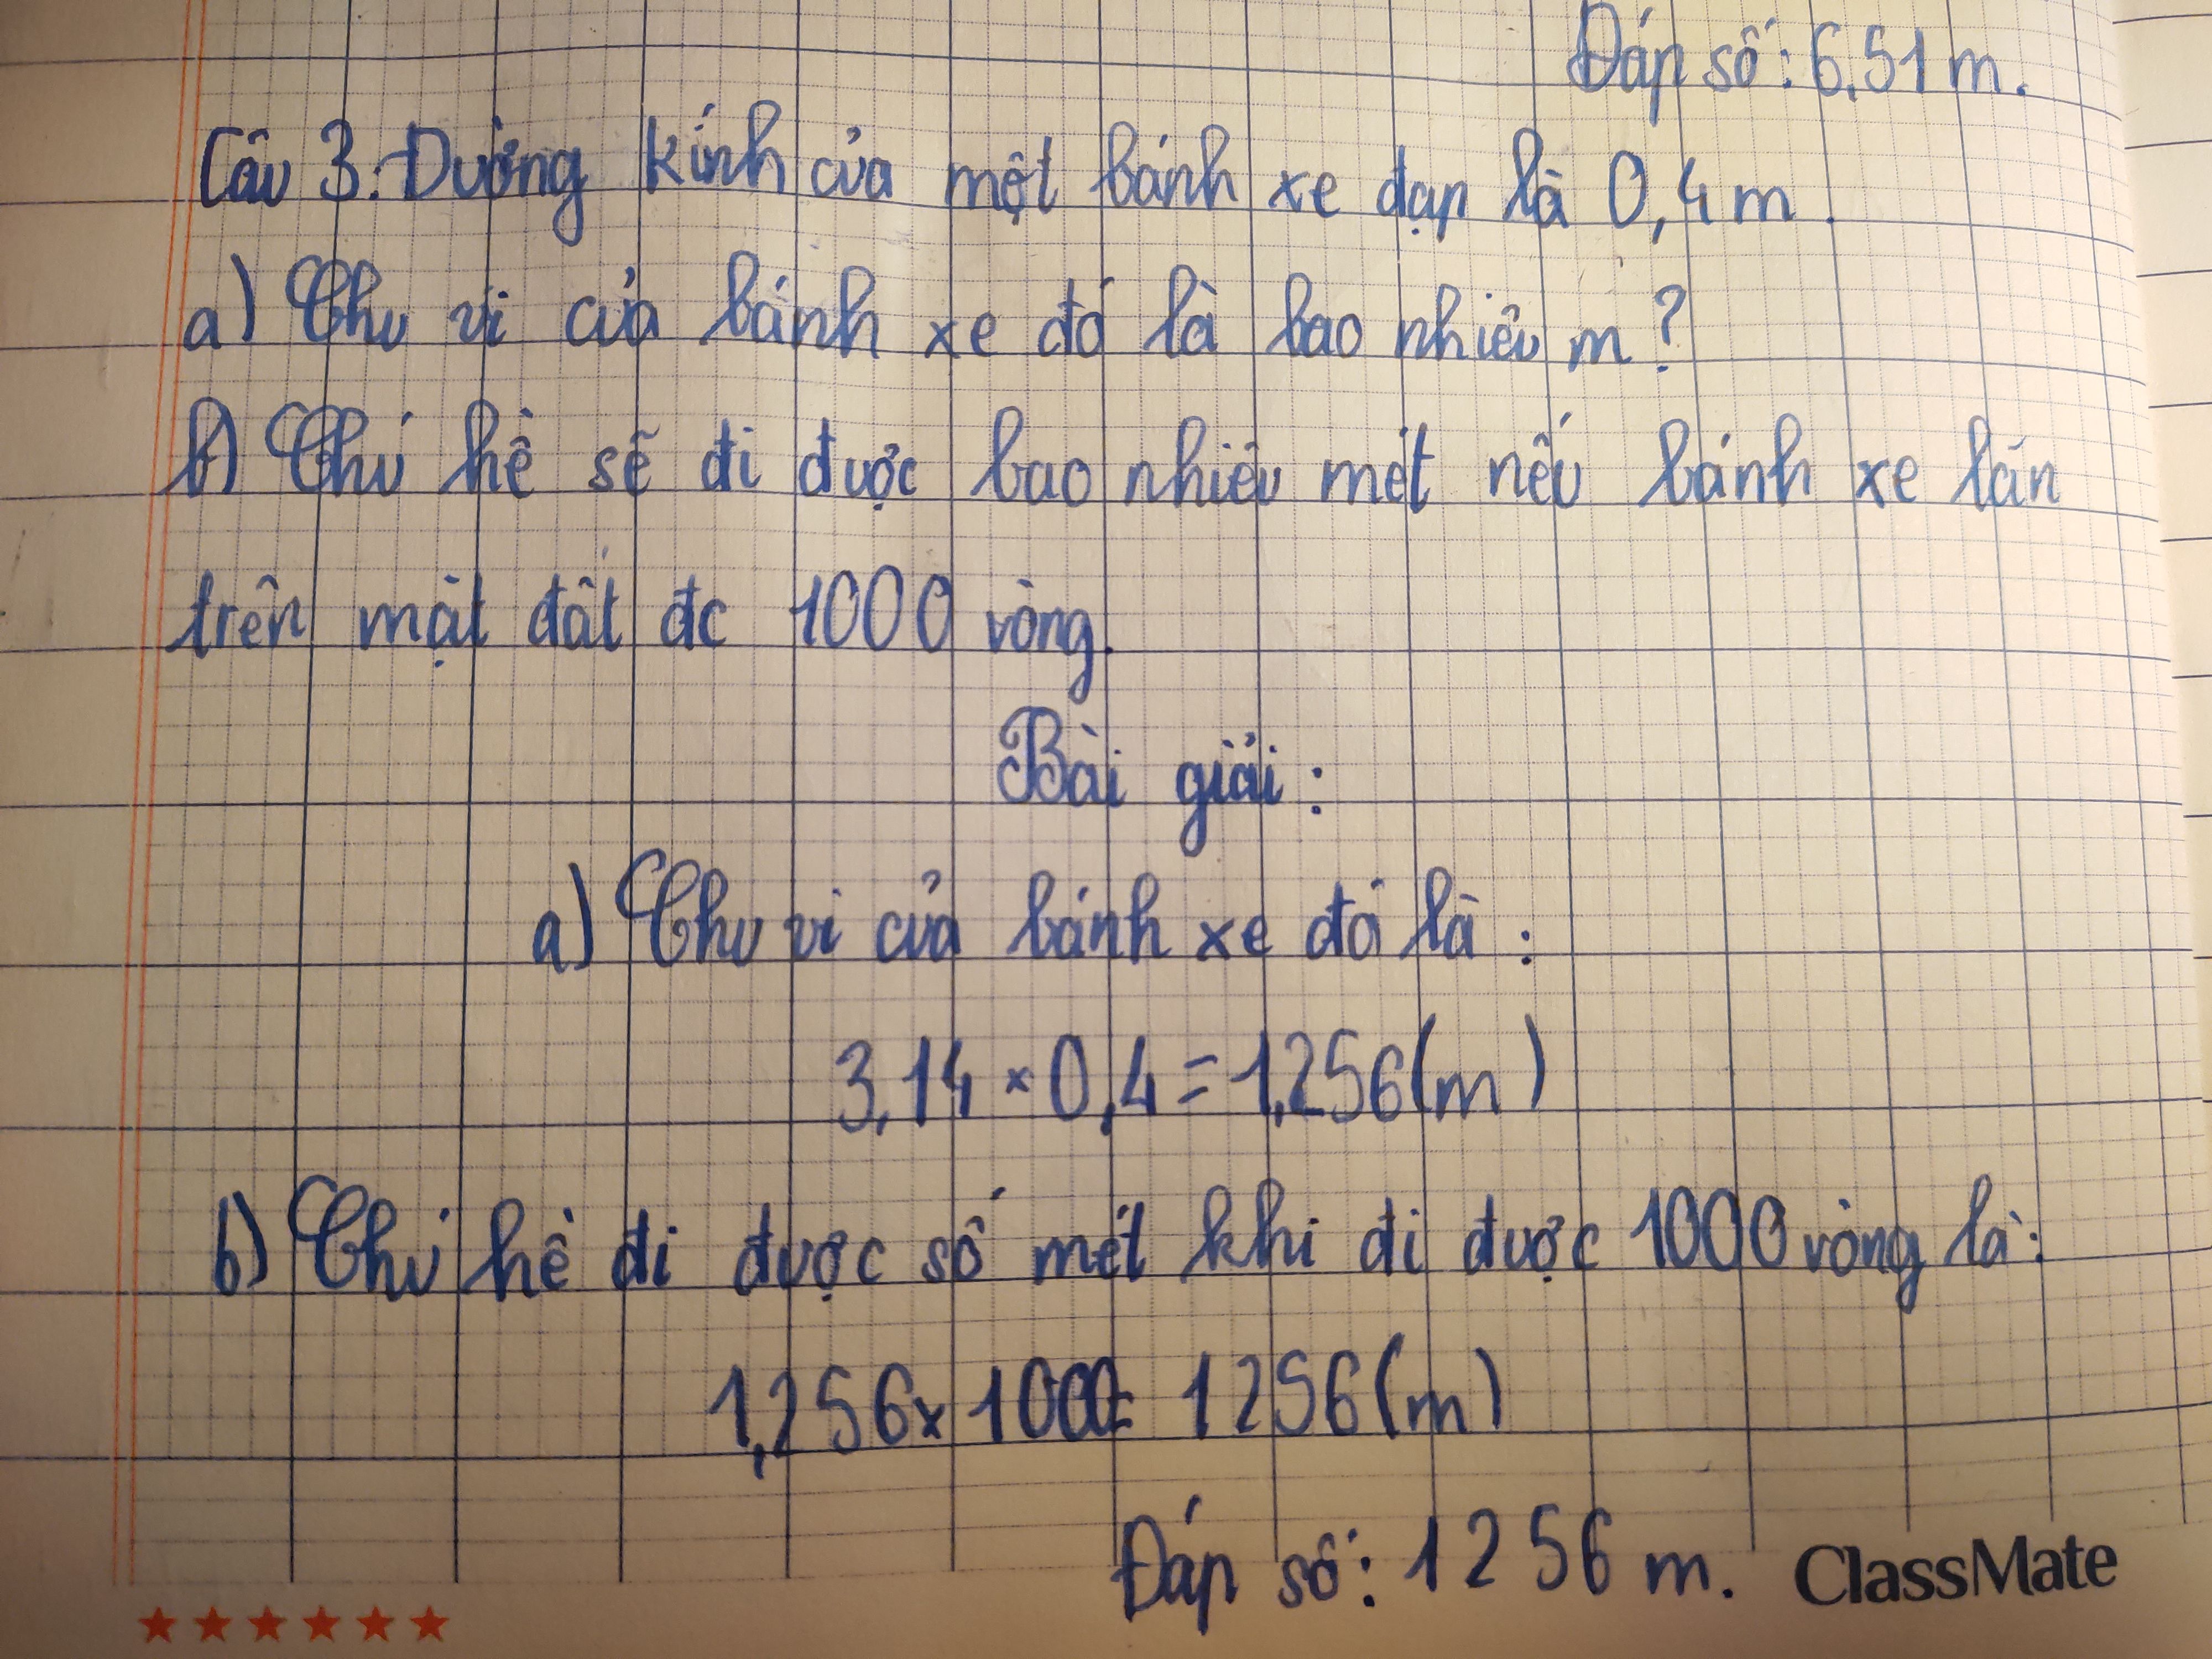 Đáp số: 6,51 m.
Câu 3: Đường kính của một bánh xe đạp là 0,4 m.
a) Chu vi của bánh xe đó là bao nhiêu m?
b) Chú hề sẽ đi được bao nhiêu mét nếu bánh xe lăn
trên mặt đất đc 1000 vòng.
Bài giải:
a) Chu vi của bánh xe đó là:
3,14 × 0,4 = 1,256(m)
b) Chú hề đi được số mét khi đi được 1000 vòng là:
1,256 × 1000 = 1256(m)
Đáp số: 1256 m.
ClassMate